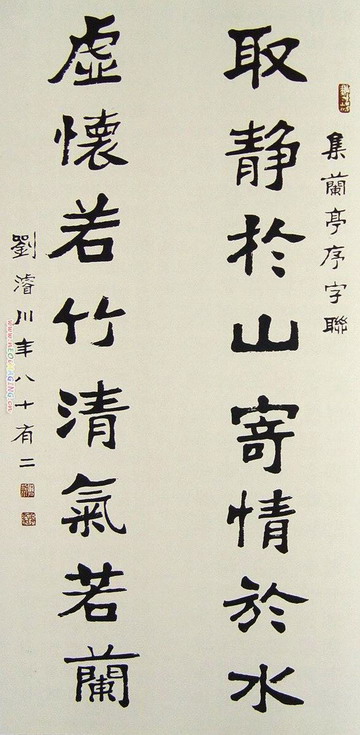 集蘭亭序字聯
取静於山寄情於水
虛懷若竹清氣若蘭
劉濬川年八十有二